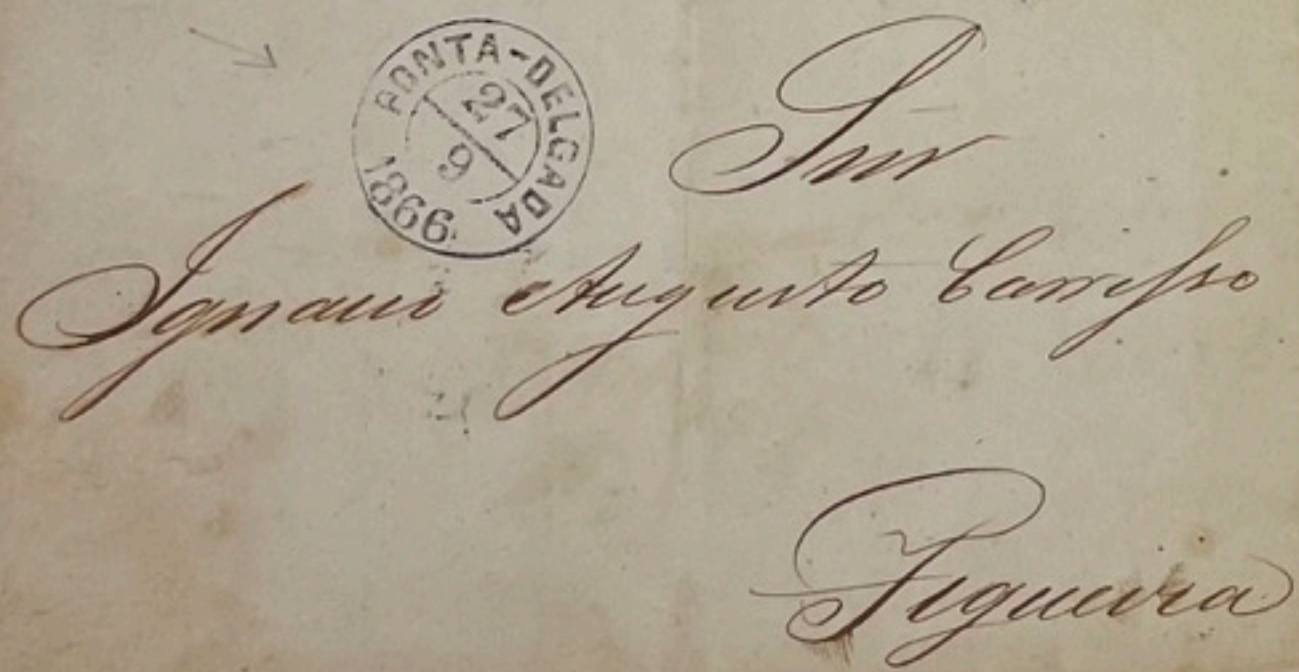 PONTA-DELGADA
27
9
1866
Snr
Ignacio Augusto Carrisso
Figueira